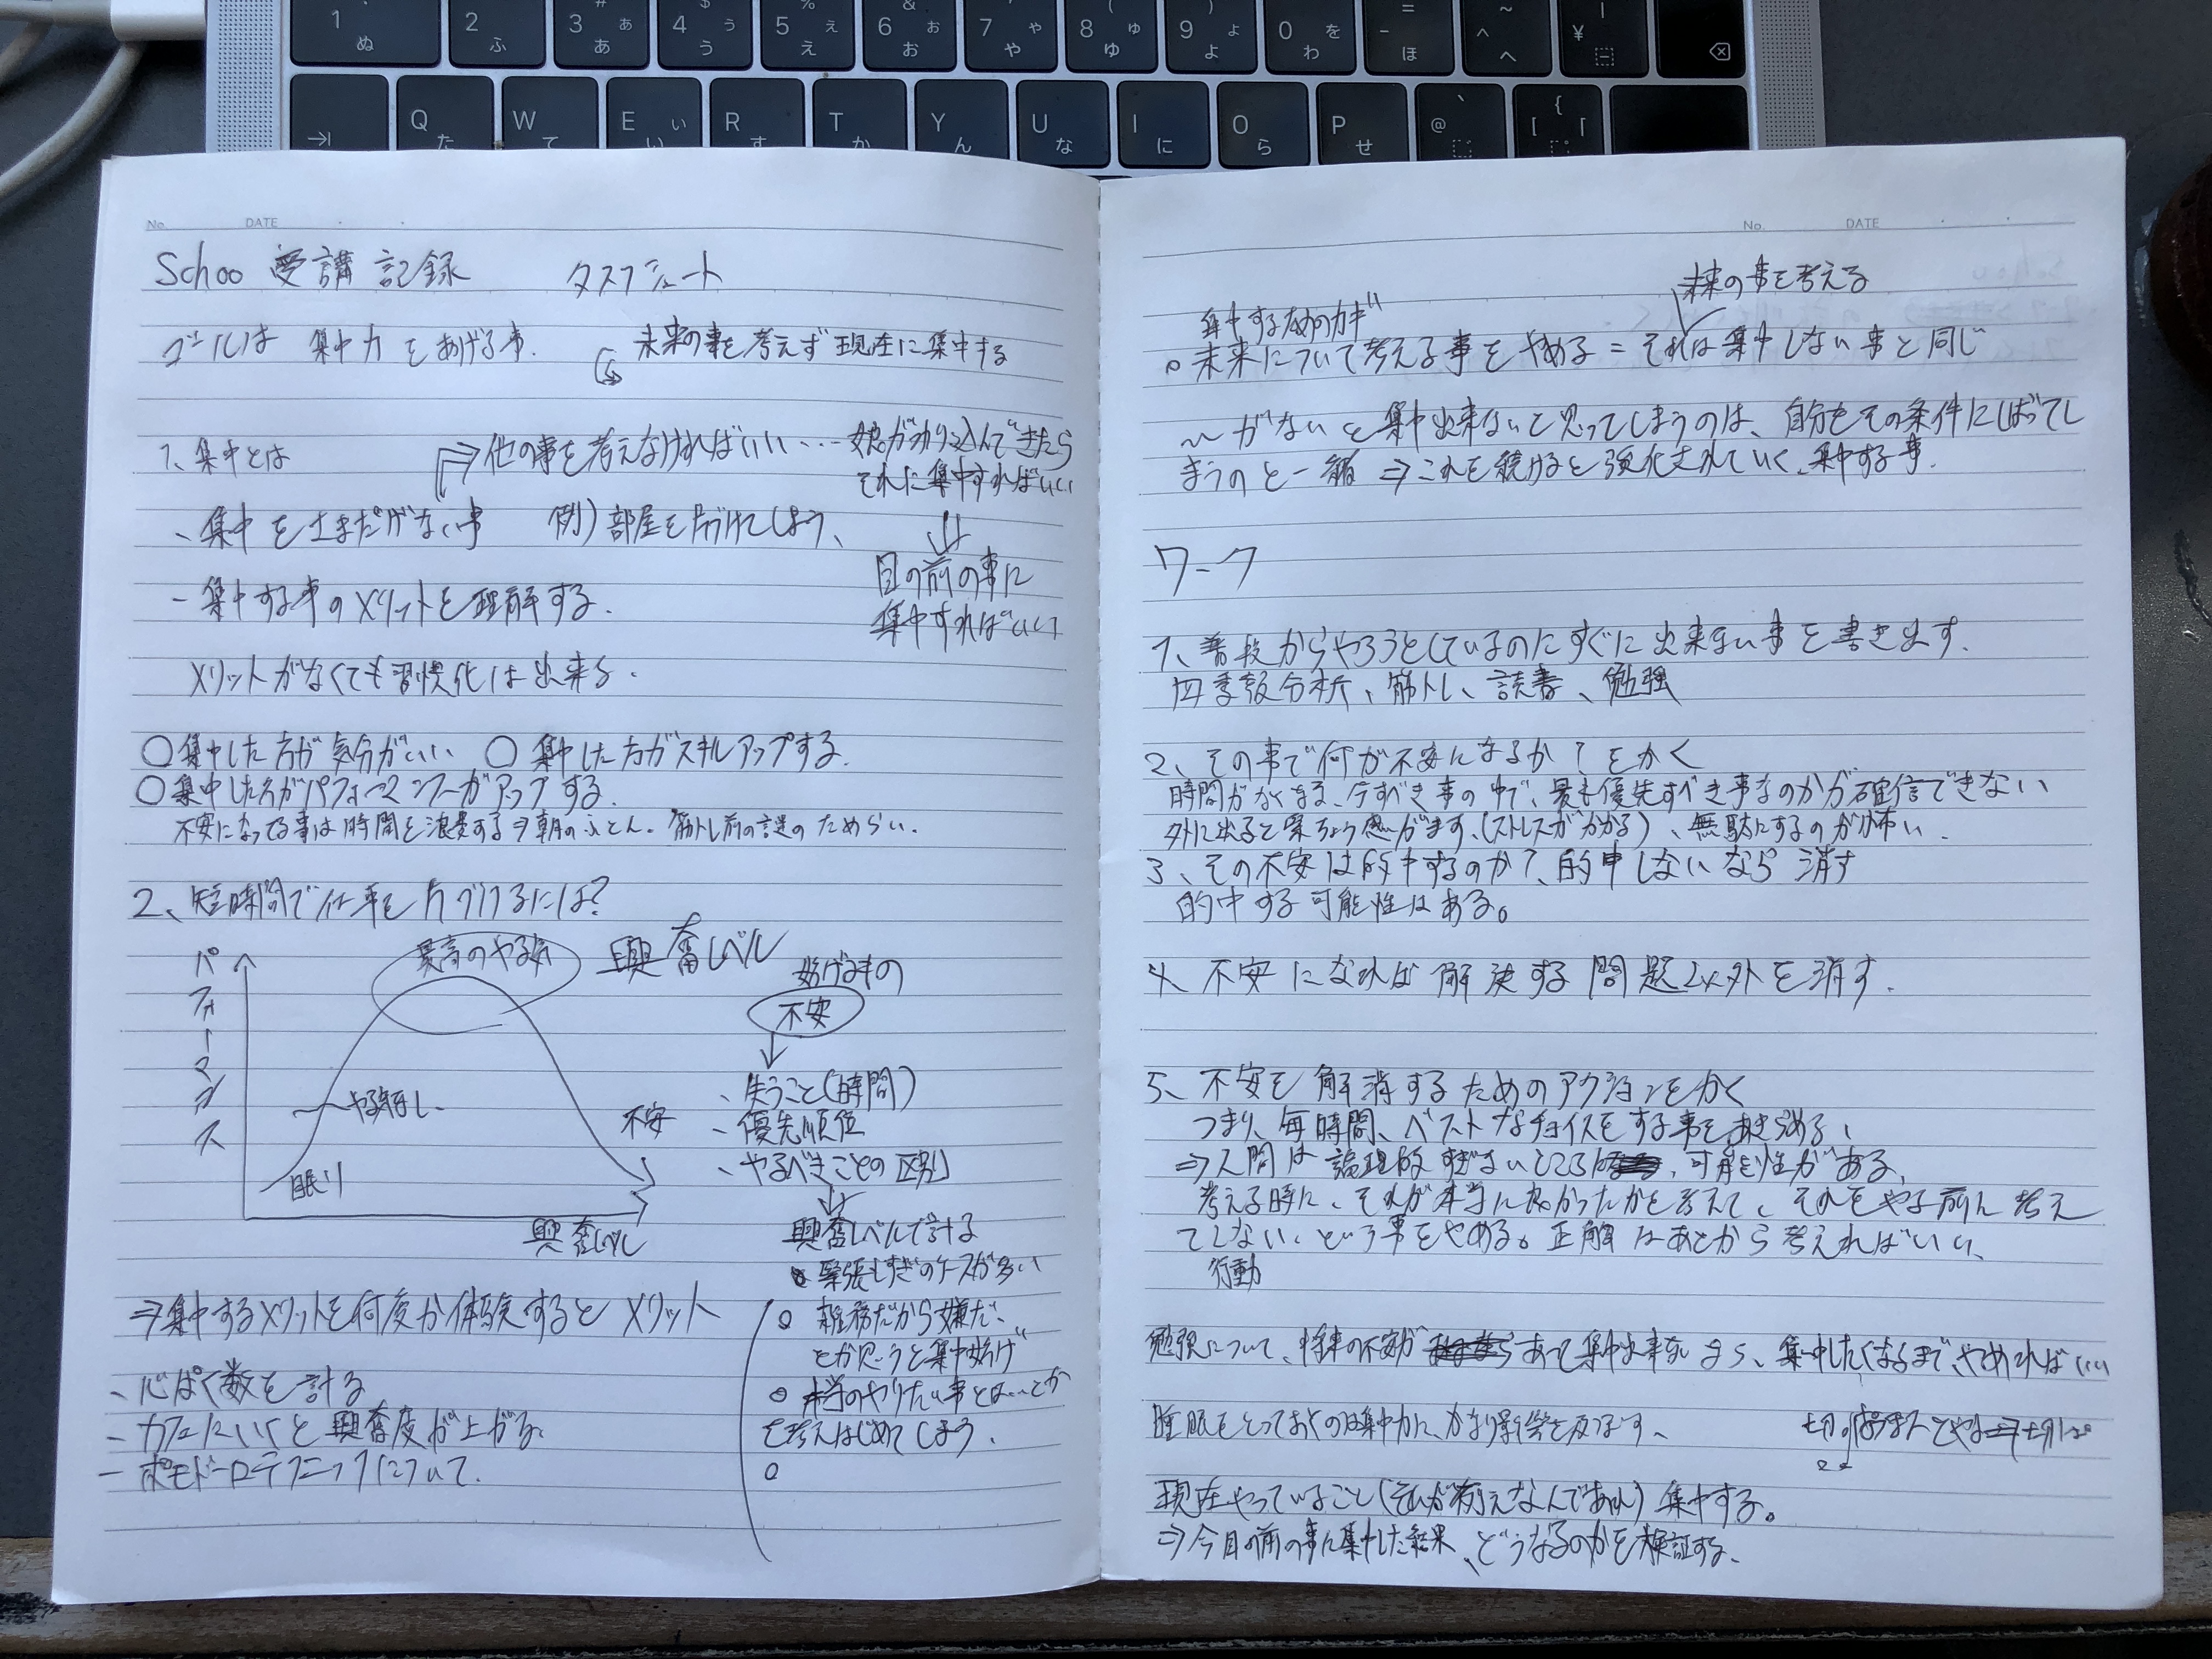 1 ぬ
2 ふ
# ぁ 3 あ
$ ぅ 4 う
% ぇ 5 え
& ぉ 6 お
7 ゃ や
( ゅ 8 ゆ
) ょ 9 よ
0 を わ
= - ほ
~ ^ へ
¥
Q た
W て
E ぃ い
R す
T か
Y ん
U な
I に
O ら
P せ
@
{ [ 「
No. DATE
Schoo 受講記録 タスクシュート
ゴールは 集中力をあげる事. 未来の事を考えず現在に集中する
1、集中とは
他の事を考えなければいい… 娘がかり込んできたら
それに集中すればいい
、集中をさまたげない事 例)部屋を片付けてしまう、
目の前の事に
集中すればいい
- 集中する事のメリットを理解する.
メリットがなくても習慣化は出来る.
○集中した方が気分がいい ○集中した方がスキルアップする.
○集中した方がパフォーマンスがアップする.
不安になってる事は時間を浪費する⇒朝のふとん. 筋トレ前の ためらい.
2、短時間で仕事を片づけるには?
パフォーマンス
最高のやる気
興奮レベル
妨げるもの
不安
やる気なし.
眠り
不安
興奮レベル
、失うこと(時間)
、優先順位
、やるべきことの区別
興奮レベルで計る
緊張しすぎのケースが多い
⇒集中するメリットを何度か体験するとメリット
○ 雑務だから嫌だ、
とか思うと集中妨げ
○ 本当のやりたい事とは…とか
を考えはじめてしまう.
○
、心ぱく数を計る
- カフェにいくと興奮度が上がる.
- ポモドーロテクニックについて.
No. DATE
集中するためのカギ
未来の事を考える
○未来について考える事をやめる = それは集中しない事と同じ
〜がないと集中出来ないと思ってしまうのは、自分をその条件にしばってし
まうのと一緒 ⇒これを続けると強化されていく、集中する事.
ワーク
1、普段からやろうとしているのにすぐに出来ない事を書き出す.
四季報分析、筋トレ、読書、勉強
2、その事で何が不安になるか?をかく
時間がなくなる、今すべき事の中で、最も優先すべき事なのかが確信できない
外に出ると緊ちょう感がます、(ストレスがかかる)、無駄にするのが怖い.
3、その不安は的中するのか?、的中しないなら消す
的中する可能性はある。
4、不安になれば解決する問題以外を消す.
5、不安を解消するためのアクションをかく
つまり、毎時間、ベストなチョイスをする事をあきらめる、
⇒人間は論理的すぎないところ 可能性がある、
考える時に、それが本当に良かったかを考えて、それをやる前に考え
てしない、という事をやめる。正解はあとから考えればいい、
行動
勉強について、将来の不安が あって集中出来ないなら、集中したくなるまで、やめればいい
睡眠をとっておくのは集中力に、かなり影響を及ぼす、
現在やっていること(それが例えなんであれ)集中する。
⇒今目の前の事に集中した結果、どうなるのかを検証する、